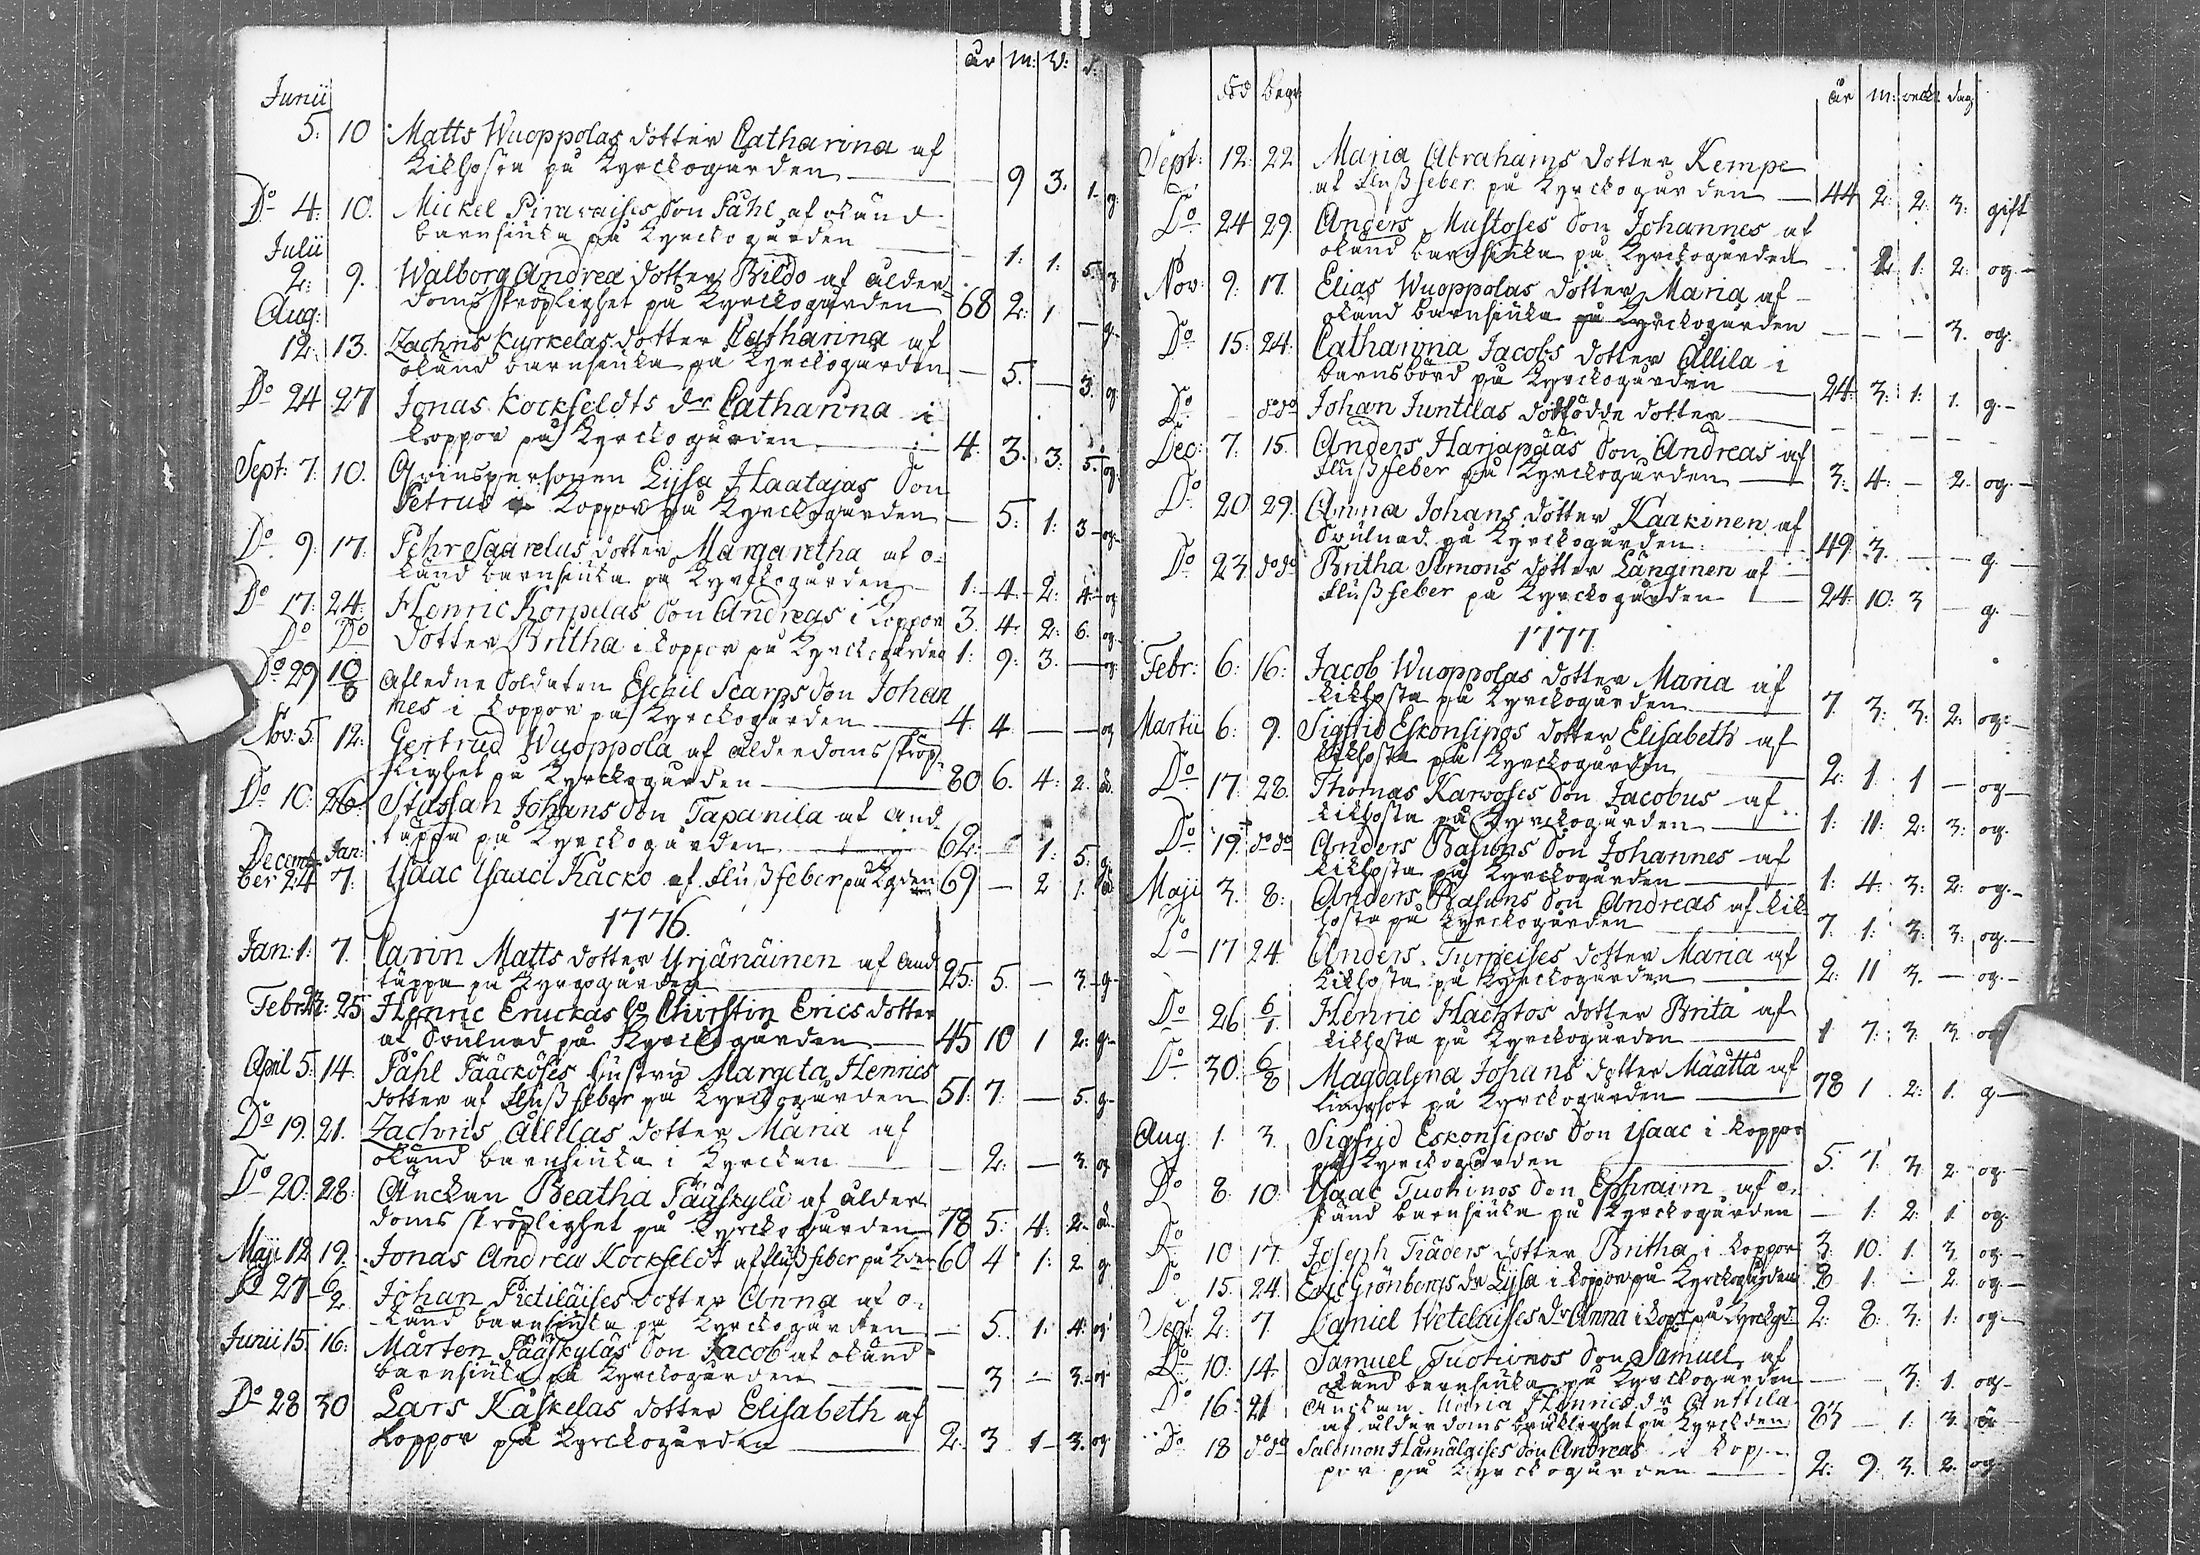 år m: v: d:
Junii
5: 10 Matts Wuoppolas dotter Catharina af
kikhosta på kyrckogården — 9 3. 1. g.
Do 4: 10. Mickel Piravaises son Påhl af okänd
barnsiuka på kyrckogården — 1: 1: 5. g
Julii
2: 9. Walborg Andrea dotter Bildo af ålder
doms skröplighet på Kyrckogården 68 2: 1 — g.
Aug:
12: 13. Zachris Kyrkelas dotter Catharina af
okänd barnsiuka på Kyrckogården — 5. — 3. og
Do 24 27 Jonas Kockfeldts dr Catharina i
koppor på Kyrckogården 4. 3. 3: 5. og
Sept: 7. 10. Qvinspersonen Lijsa Haatajas son
Petrus i koppor på Kyrckogården — 5: 1: 3 og
Do 9: 17: Pehr Saarelas dotter Margaretha af o:
känd barnsiuka på Kyrckogården 1: 4. 2: 4: og
Do 17: 24: Henric Korpelas son Andreas i koppor 3. 4. 2: 6. og
Do Do dotter Britha i koppor på Kyrckogården 1: 9: 3. — og
Do 29 10/8 afledne Soldaten Eschil Scarps son Johan
nes i koppor på Kyrckogården 4. 4. — — og
Nov: 5. 12: Gertrud Wuoppola af ålderdoms skröp
lighet på Kyrckogården 80 6. 4: 2.
Do 10: 26. Staffan Johans son Tapanila af and
täppa på Kyrckogården 62: 1: 5: g
Decem Jan:
ber 24 7: Isaac Isaacs Käcko af flußfeber på kgden 69 — 2 1.
1776.
Jan: 1: 7. Carin Matts dotter Yrjänäinen af and
täppa på Kyrckogården 25: 5. — 3. g.
Febr: 25 Henric Erickas Chirstin Erics dotter
af svulnad på Kyrckogården 45 10 1 2: g.
April 5: 14. Påhl Pääcköses hustru Margeta Henrics
dotter af flußfeber på Kyrckogården 51: 7: — 5. g.
Do 19. 21. Zachris Allilas dotter Maria af
okänd barnsiuka i Kyrckan — 2: — 3. og
Do 20: 28: Änckan Beatha Pääskylä af ålder
doms skröplighet på Kyrckogården 78 5: 4: 2.
Maji 12 19. Jonas Andrea Kockfeldt af flußfeber på Kden 60 4 1: 2 g.
Do 27 6/2 Johan Pietiläises dotter Anna af o:
känd barnsiuka på Kyrckogården — 5. 1: 4: og
Junii 15 16: Mårten Pääskyläs son Jacob af okänd
barnsiuka på Kyrckogården — 3 — 3. og
Do 28 30 Lars Käskelas dotter Elisabeth af
koppor på Kyrckogården 2: 3 1 3. og
död begr år m: veck: dag
Sept: 12: 22. Maria Abrahams dotter Kempe
af flußfeber på Kyrckogården 44 2: 2: 3: gift
Do 24 29. Anders Mustoses son Johannes af
okänd barnsiuka på Kyrckogården 2 1: 2: og
Nov: 9: 17. Elias Wuoppolas dotter Maria af
okänd barnsiuka på Kyrckogården — — — 3. og.
Do 15: 24: Catharina Jacobs dotter Allila i
barnsbörd på Kyrckogården 24: 3: 1: 1. g.
Do dodo Johan Juntilas dödfödde dotter — — — —
Dec: 7. 15. Anders Harjapääs son Andreas af
flußfeber på Kyrckogården 3: 4: — 2. og.
Do 20 29. Anna Johans dotter Kaakinen af
svulnad på Kyrckogården 49 3. — — g.
Do 23 dodo Britha Simons dotter Länginen af
flußfeber på Kyrckogården 24: 10: 3 — g.
1777.
Febr: 6: 16: Jacob Wuoppolas dotter Maria af
kikhosta på Kyrckogården 7. 3: 3: 2: og.
Martii 6: 9. Sigfrid Eskonsipos dotter Elisabeth af
kikhosta på Kyrckogården 2: 1: 1 — og
Do 17: 28. Thomas Karvoses son Jacobus af
kikhosta på Kyrckogården 1: 11: 2: 3: og.
Do 19. dodo Anders Basuns son Johannes af
kikhosta på Kyrckogården 1: 4: 3: 2: og.
Maji 3. 8: Anders Basuns son Andreas af kik
hosta på Kyrckogården 7: 1: 3: 3: og.
Do 17 24 Anders Turpeises dotter Maria af
kikhosta på Kyrckogården 2: 11 3. — og.
Do 26 6/1. Henric Hachtos dotter Brita af
kikhosta på Kyrckogården 1 7: 3. 3. og
Do 30. 6/8 Magdalena Johans dotter Määttä af
lungsot på Kyrckogården 78 1. 2: 1. g
Aug. 1. 3. Sigfrid Eskonsipos son Isaac i koppor
på Kyrckogården 5. 7: 3. 2. og.
Do 8: 10. Isaac Tuohinos son Ephraim af o:
känd barnsiuka på Kyrckogården — 1: 2: 1 og.
Do 10 17. Joseph Träders dotter Britha i koppor 3: 10. 1. 3. og.
Do 15. 24. Eric Grönbergs dr Lijsa i koppor på Kyrckogården 8 1. — 2. og
Sept: 2: 7. Daniel Weteläises dr Anna i kopr på Kyrckgd 2: 8: 3: 1: og.
Do 10: 14. Samuel Tuohinos son Samuel af
okänd barnsiuka på Kyrckogården — — 3: 1. og
Do 16: 21 Änckan Maria Henrics dr Anttila
af ålderdoms bräklighet på Kyrckden 83 — 1: 3.
Do 18 dodo Salomon Hämäläises son Andreas i kop-
por på Kyrckogården 2: 9: 3. 2. og.